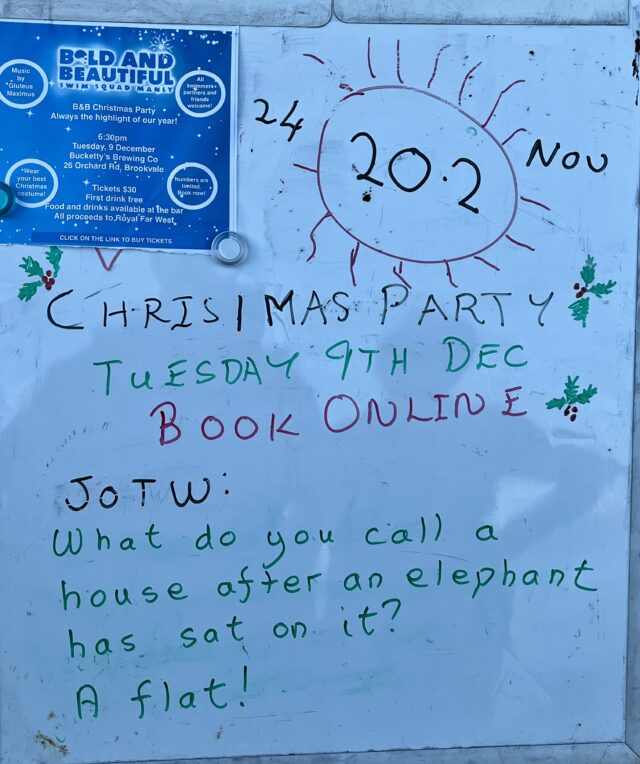 BOLD AND
BEAUTIFUL
SWIM SQUAD MANLY
Music
by
"Gluteus
Maximus
All
swimmers+
partners and
friends
welcome!
B&B Christmas Party
Always the highlight of our year!
6:30pm
Tuesday, 9 December
Bucketty's Brewing Co
26 Orchard Rd, Brookvale
"Wear
your best
Christmas
costume!
Numbers are
limited.
Book now!
Tickets $30
First drink free
Food and drinks available at the bar
All proceeds to Royal Far West
CLICK ON THE LINK TO BUY TICKETS
24
20.2
NOV
CHRISIMAS PARTY
TUESDAY 9TH DEC
BOOK ONLINE
JOTW:
What do you call a
house after an elephant
has sat on it?
A flat!